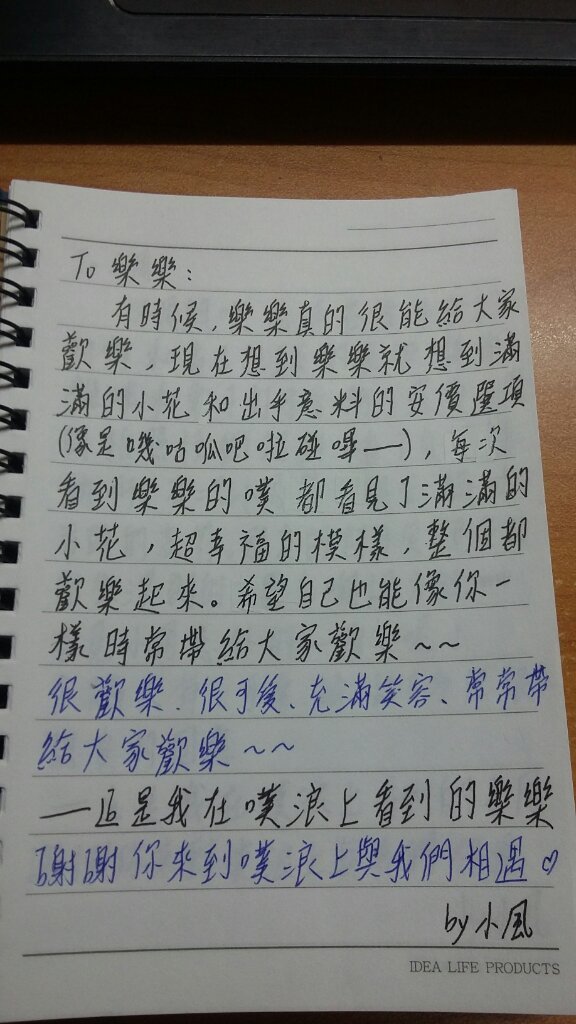 To 樂樂:
有時候,樂樂真的很能給大家
歡樂,現在想到樂樂就想到滿
滿的小花和出乎意料的安價選項
(像是嘰咕呱吧啦碰嗶——),每次
看到樂樂的噗都看見了滿滿的
小花,超幸福的模樣,整個都
歡樂起來。希望自己也能像你一
樣時常帶給大家歡樂~~
很歡樂、很可愛、充滿笑容、常常帶
給大家歡樂~~
——這是我在噗浪上看到的樂樂
謝謝你來到噗浪上與我們相遇♡
by 小風
IDEA LIFE PRODUCTS